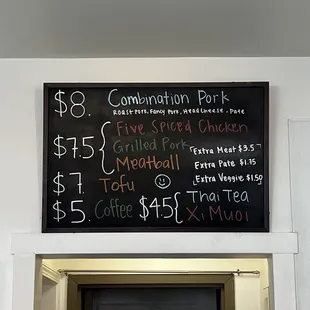 $8. Combination Pork
Roast Pork, Fancy Pork, Headcheese, Pate
Five Spiced Chicken
$7.5 { Grilled Pork
Meatball
Extra Meat $3.5
Extra Pate $1.75
Extra Veggie $1.50
$7. Tofu
$5. Coffee $4.5 { Thai Tea
Xi Muoi